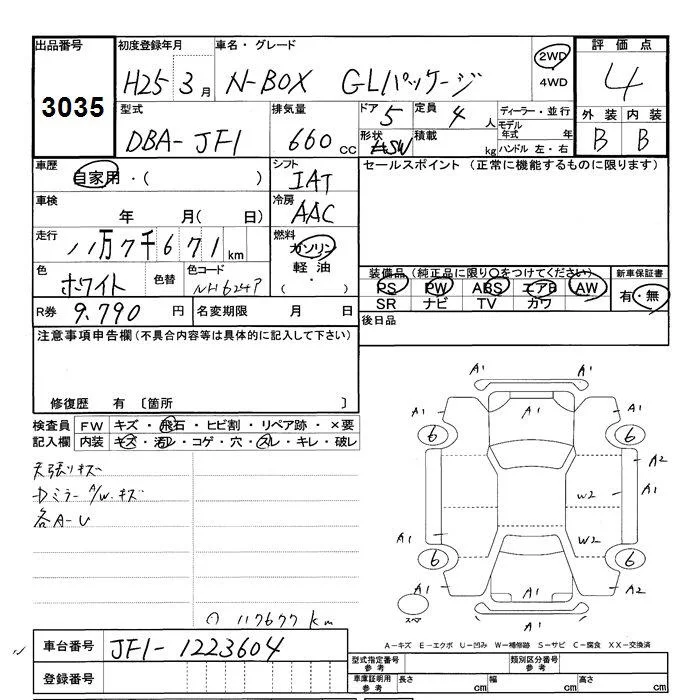 出品番号 初度登録年月 車名・グレード 評価点
3035 H25 3月 N-BOX GLパッケージ 2WD 4WD 4
型式 排気量 ドア 定員 ディーラー・並行 外装 内装
DBA-JF1 660cc 5 4人 モデル年式 年 B B
形状 5W 積載 kg ハンドル 左・右
車歴 自家用・( ) シフト IAT セールスポイント (正常に機能するものに限ります)
車検 年 月( 日) 冷房 AAC
走行 11万7千671km 燃料 ガソリン
軽油・( )
色 ホワイト 色替 色コード NH624P
装備品(純正品に限り○をつけてください) 新車保証書
PS PW ABS エアB AW 有・無
SR ナビ TV カワ
R券 9,790円 名変期限 月 日 後日品
注意事項申告欄(不具合内容等は具体的に記入して下さい)
修復歴 有 〔箇所 〕
検査員 FW キズ・飛石・ヒビ割・リペア跡・×要
記入欄 内装 キズ・汚レ・コゲ・穴・スレ・キレ・破レ
天張リキズ
Dミラー A/W.キズ
各A-U
⊙ 117677 km
A1 A1
A1 A1 A1
6 6
A2
A1
W2
A1 W2
6 6
A2 A1 A2
スペア A1
A-キズ E-エクボ U-凹み W-補修跡 S-サビ C-腐食 XX-交換済
車台番号 JF1-1223604
登録番号
型式指定番号 参考 類別区分番号 参考
車庫証明用 参考 長さ cm 幅 cm 高さ cm